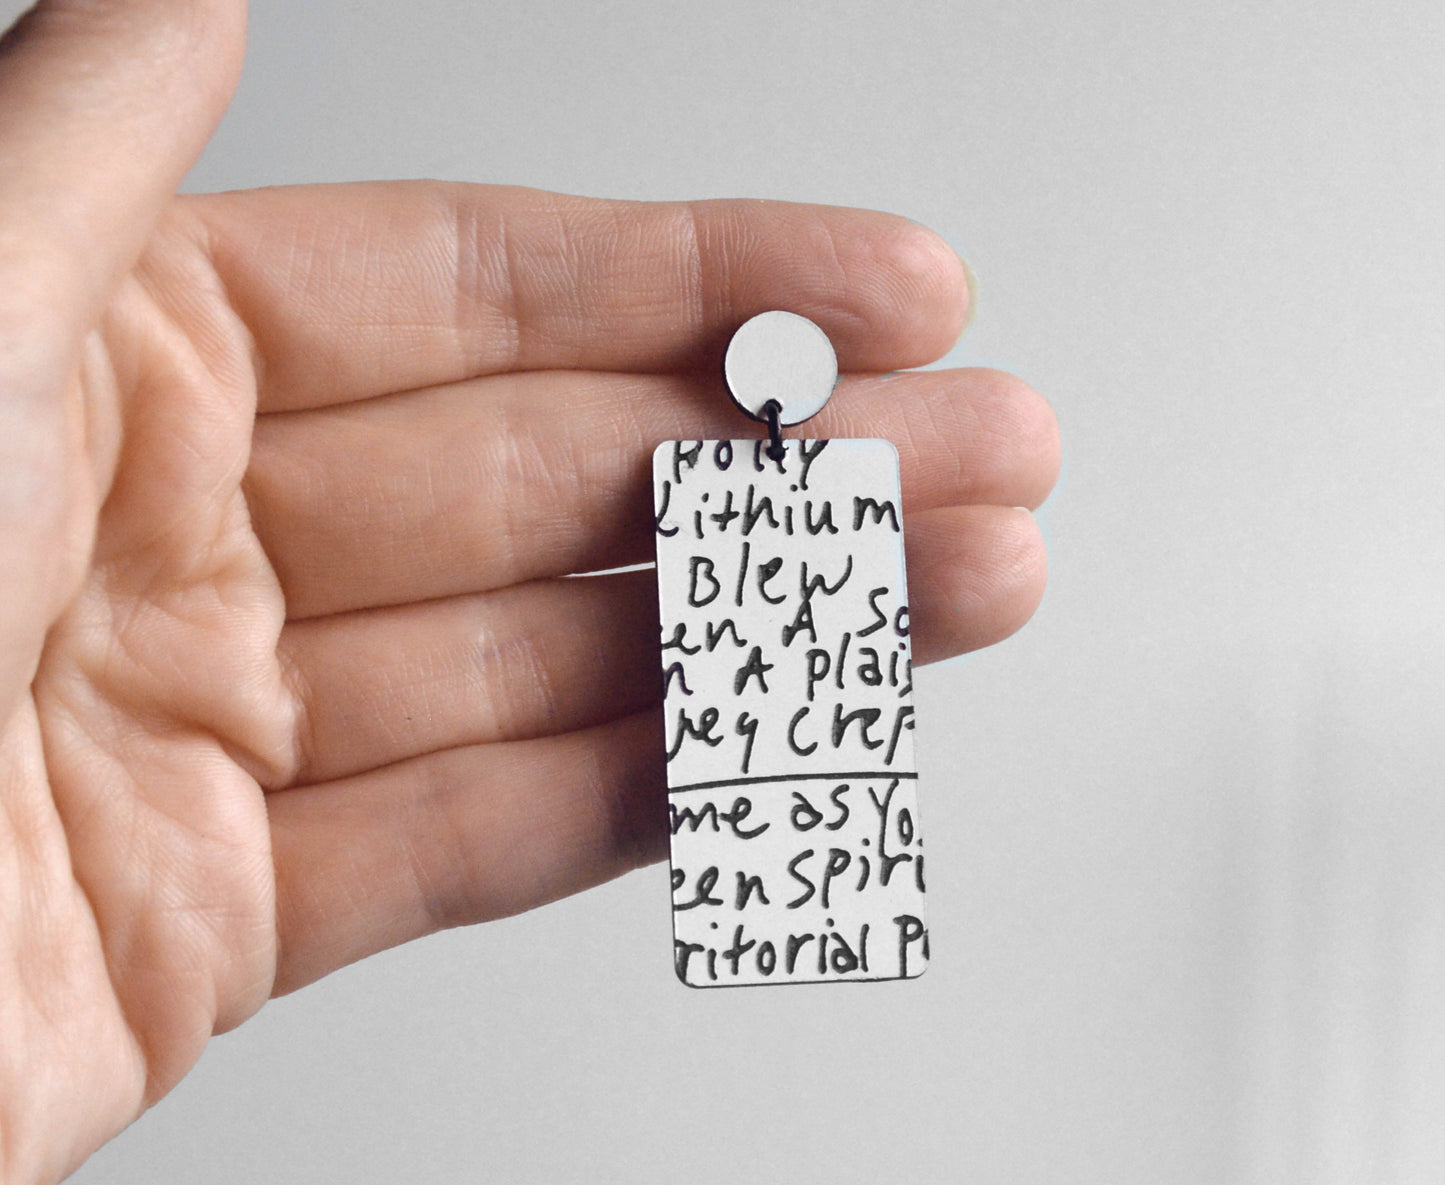 Polly
Lithium
Blew
een A So
n A plai
rey crep
me as Yo
een spiri
rritorial Pi